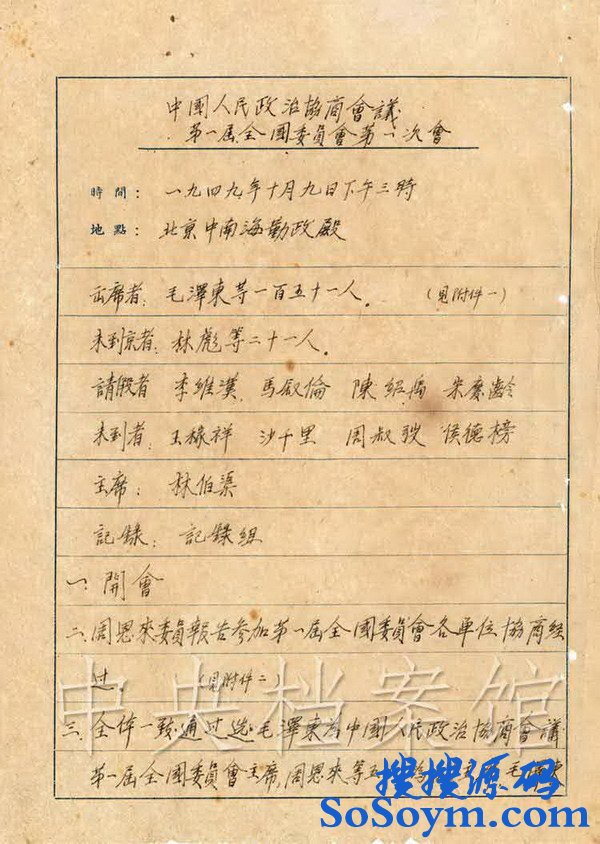 中國人民政治協商會議
第一屆全國委員會第一次會
時間： 一九四九年十月九日下午三時
地點： 北京中南海勤政殿
出席者：毛澤東等一百五十一人。 （見附件一）
未到京者：林彪等二十一人。
請假者 李維漢 馬敘倫 陳紹禹 朱學範
未到者：王稼祥 沙千里 周叔弢 侯德榜
主席：林伯渠
記錄：記錄組
一、開會
二、周恩來委員報告參加第一屆全國委員會各單位協商經
過。（見附件二）
三、全体一致通过选毛澤東为中國人民政治協商會議
第一屆全國委員會主席，周恩來等五
中央档案馆
搜搜源码
SoSoym.com